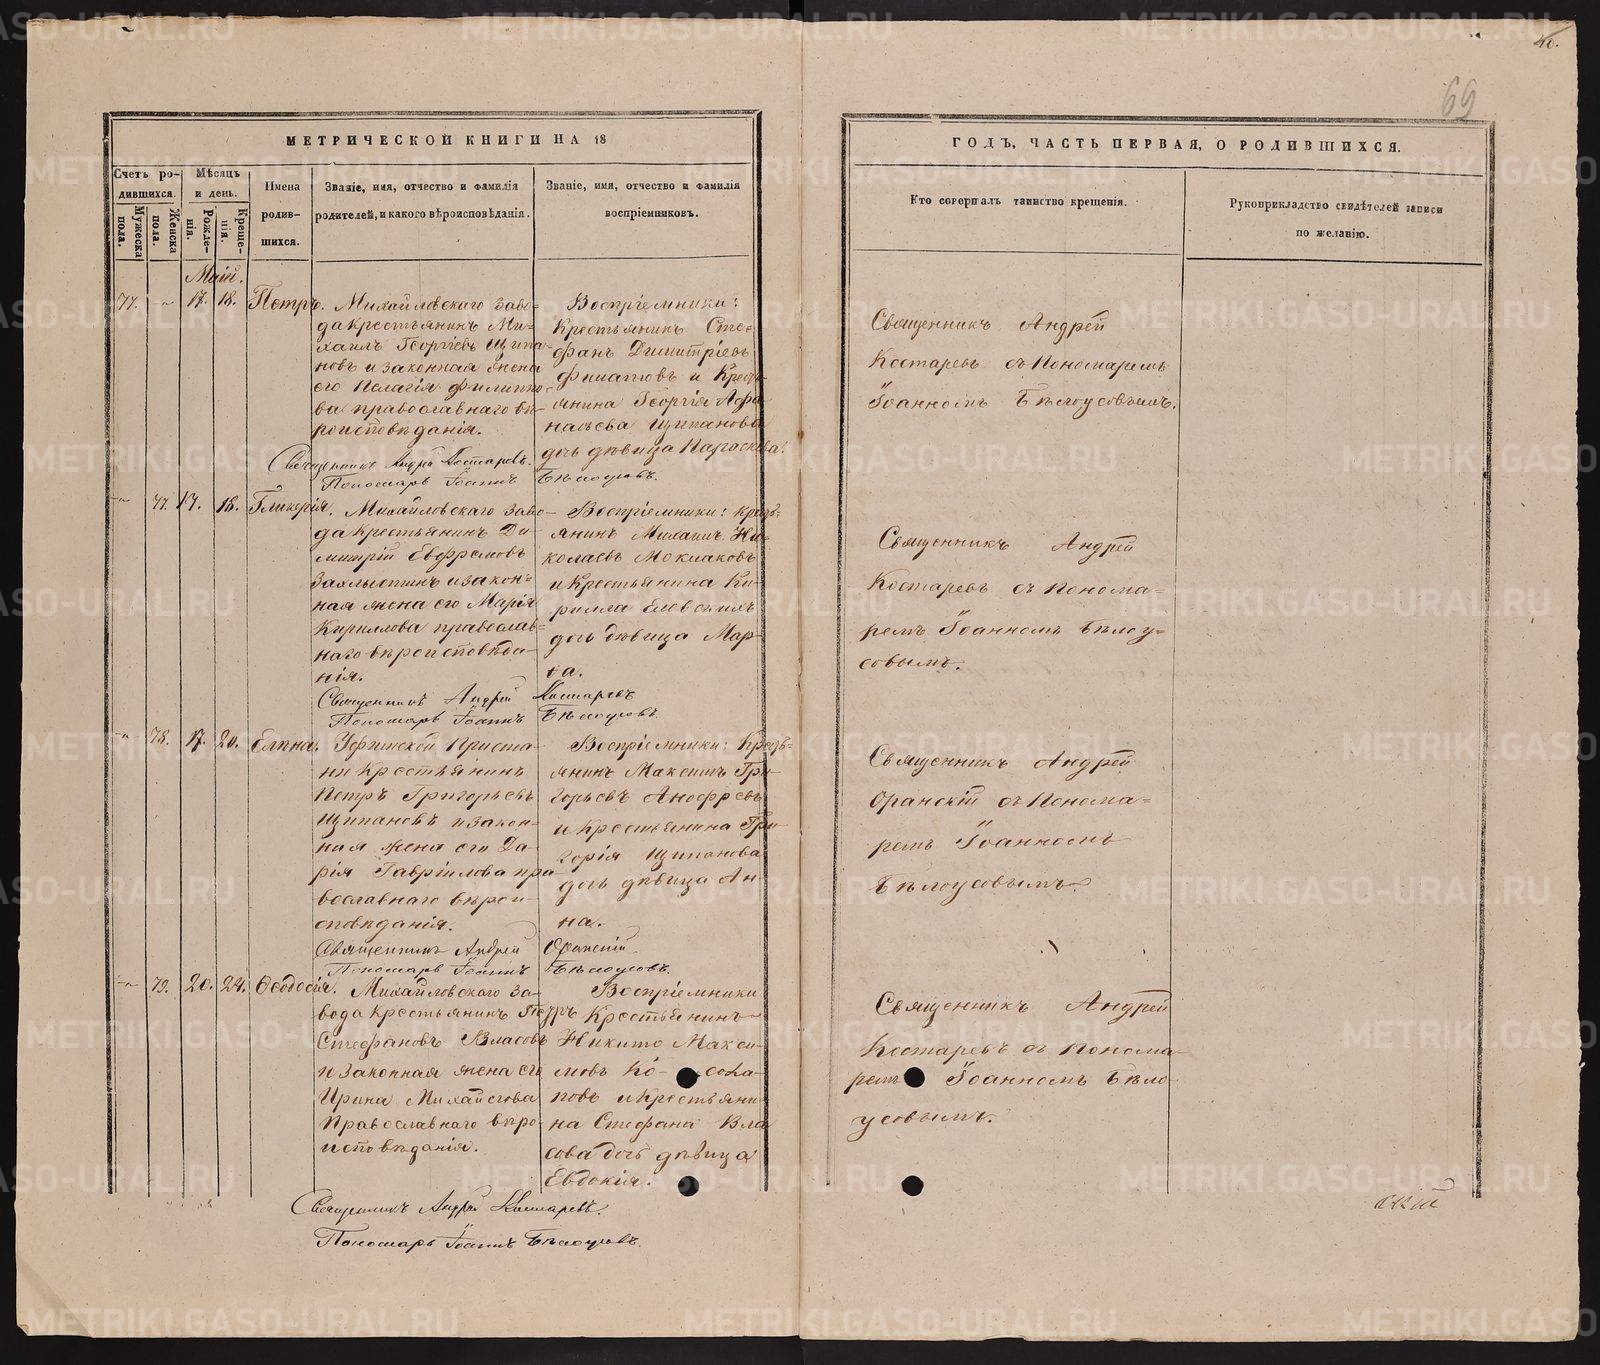 40.
69
МЕТРИЧЕСКОЙ КНИГИ НА 18
Счетъ ро-
дившихся.
Мѣсяцъ
и день.
Мужеска
пола.
Женска
пола.
Рожде-
нія.
Креще-
нія.
Имена
родив-
шихся.
Званіе, имя, отчество и фамилія
родителей, и какого вѣроисповѣданія.
Званіе, имя, отчество и фамилія
воспріемниковъ.
Май.
77. 17. 18. Петръ.
Михайловскаго заво-
да крестьянинъ Ми-
хаилъ Георгіевъ Щипа-
новъ и законная жена
его Пелагія Филиппо-
ва православнаго вѣ-
роисповѣданія.
Воспріемники:
Крестьянинъ Сте-
фанъ Димитріевъ
и Крест-
янина Георгія Афа-
насьева Щипанова
дочь дѣвица Параскева.
Священникъ Андрей Костаревъ.
Пономарь Іоаннъ Бѣлоусовъ.
77. 17. 18. Гликерія.
Михайловскаго заво-
да крестьянинъ Ди-
митрій Евфремовъ
Захлыстинъ и закон-
ная жена его Марія
Кириллова православ-
наго вѣроисповѣда-
нія.
Воспріемники: крест-
янинъ Михаилъ Ни-
колаевъ Моклаковъ
и Крестьянина Ки-
рилла
дочь дѣвица Мар-
ѳа.
Священникъ Андрей Костаревъ
Пономарь Іоаннъ Бѣлоусовъ.
78. 17. 20. Елена.
Уфимской Приста-
ни крестьянинъ
Петръ Григорьевъ
Щипановъ и закон-
ная жена его Да-
рія Гавріилова пра-
вославнаго вѣрои-
сповѣданія.
Воспріемники: Крест-
янинъ Максимъ Гри-
горьевъ Анофревъ
и Крестьянина Гри-
горія Щипанова
дочь дѣвица Ан-
на.
Священникъ Андрей Оранскій
Пономарь Іоаннъ Бѣлоусовъ.
79. 20. 24. Ѳеодосія.
Михайловскаго за-
вода крестьянинъ Петръ
Стефановъ Власовъ
и законная жена его
Ирина Михайлова
Православнаго вѣро-
исповѣданія.
Воспріемники
Крестьянинъ
Никита Макси-
мовъ
и крестьяни-
на Стефана Вла-
сова дочь дѣвица
Евдокія.
Священникъ Андрей Костаревъ.
Пономарь Іоаннъ Бѣлоусовъ.
ГОДЪ, ЧАСТЬ ПЕРВАЯ, О РОДИВШИХСЯ.
Кто совершалъ таинство крещенія.
Рукоприкладство свидѣтелей записи
по желанію.
Священникъ Андрей
Костаревъ съ Пономаремъ
Іоанномъ Бѣлоусовымъ.
Священникъ Андрей
Костаревъ съ Понома-
ремъ Іоанномъ Бѣлоу-
совымъ.
Священникъ Андрей
Оранскій съ Понома-
ремъ Іоанномъ
Бѣлоусовымъ.
Священникъ Андрей
Костаревъ съ Понома-
ремъ Іоанномъ Бѣло-
усовымъ.
METRIKI.GASO-URAL.RU